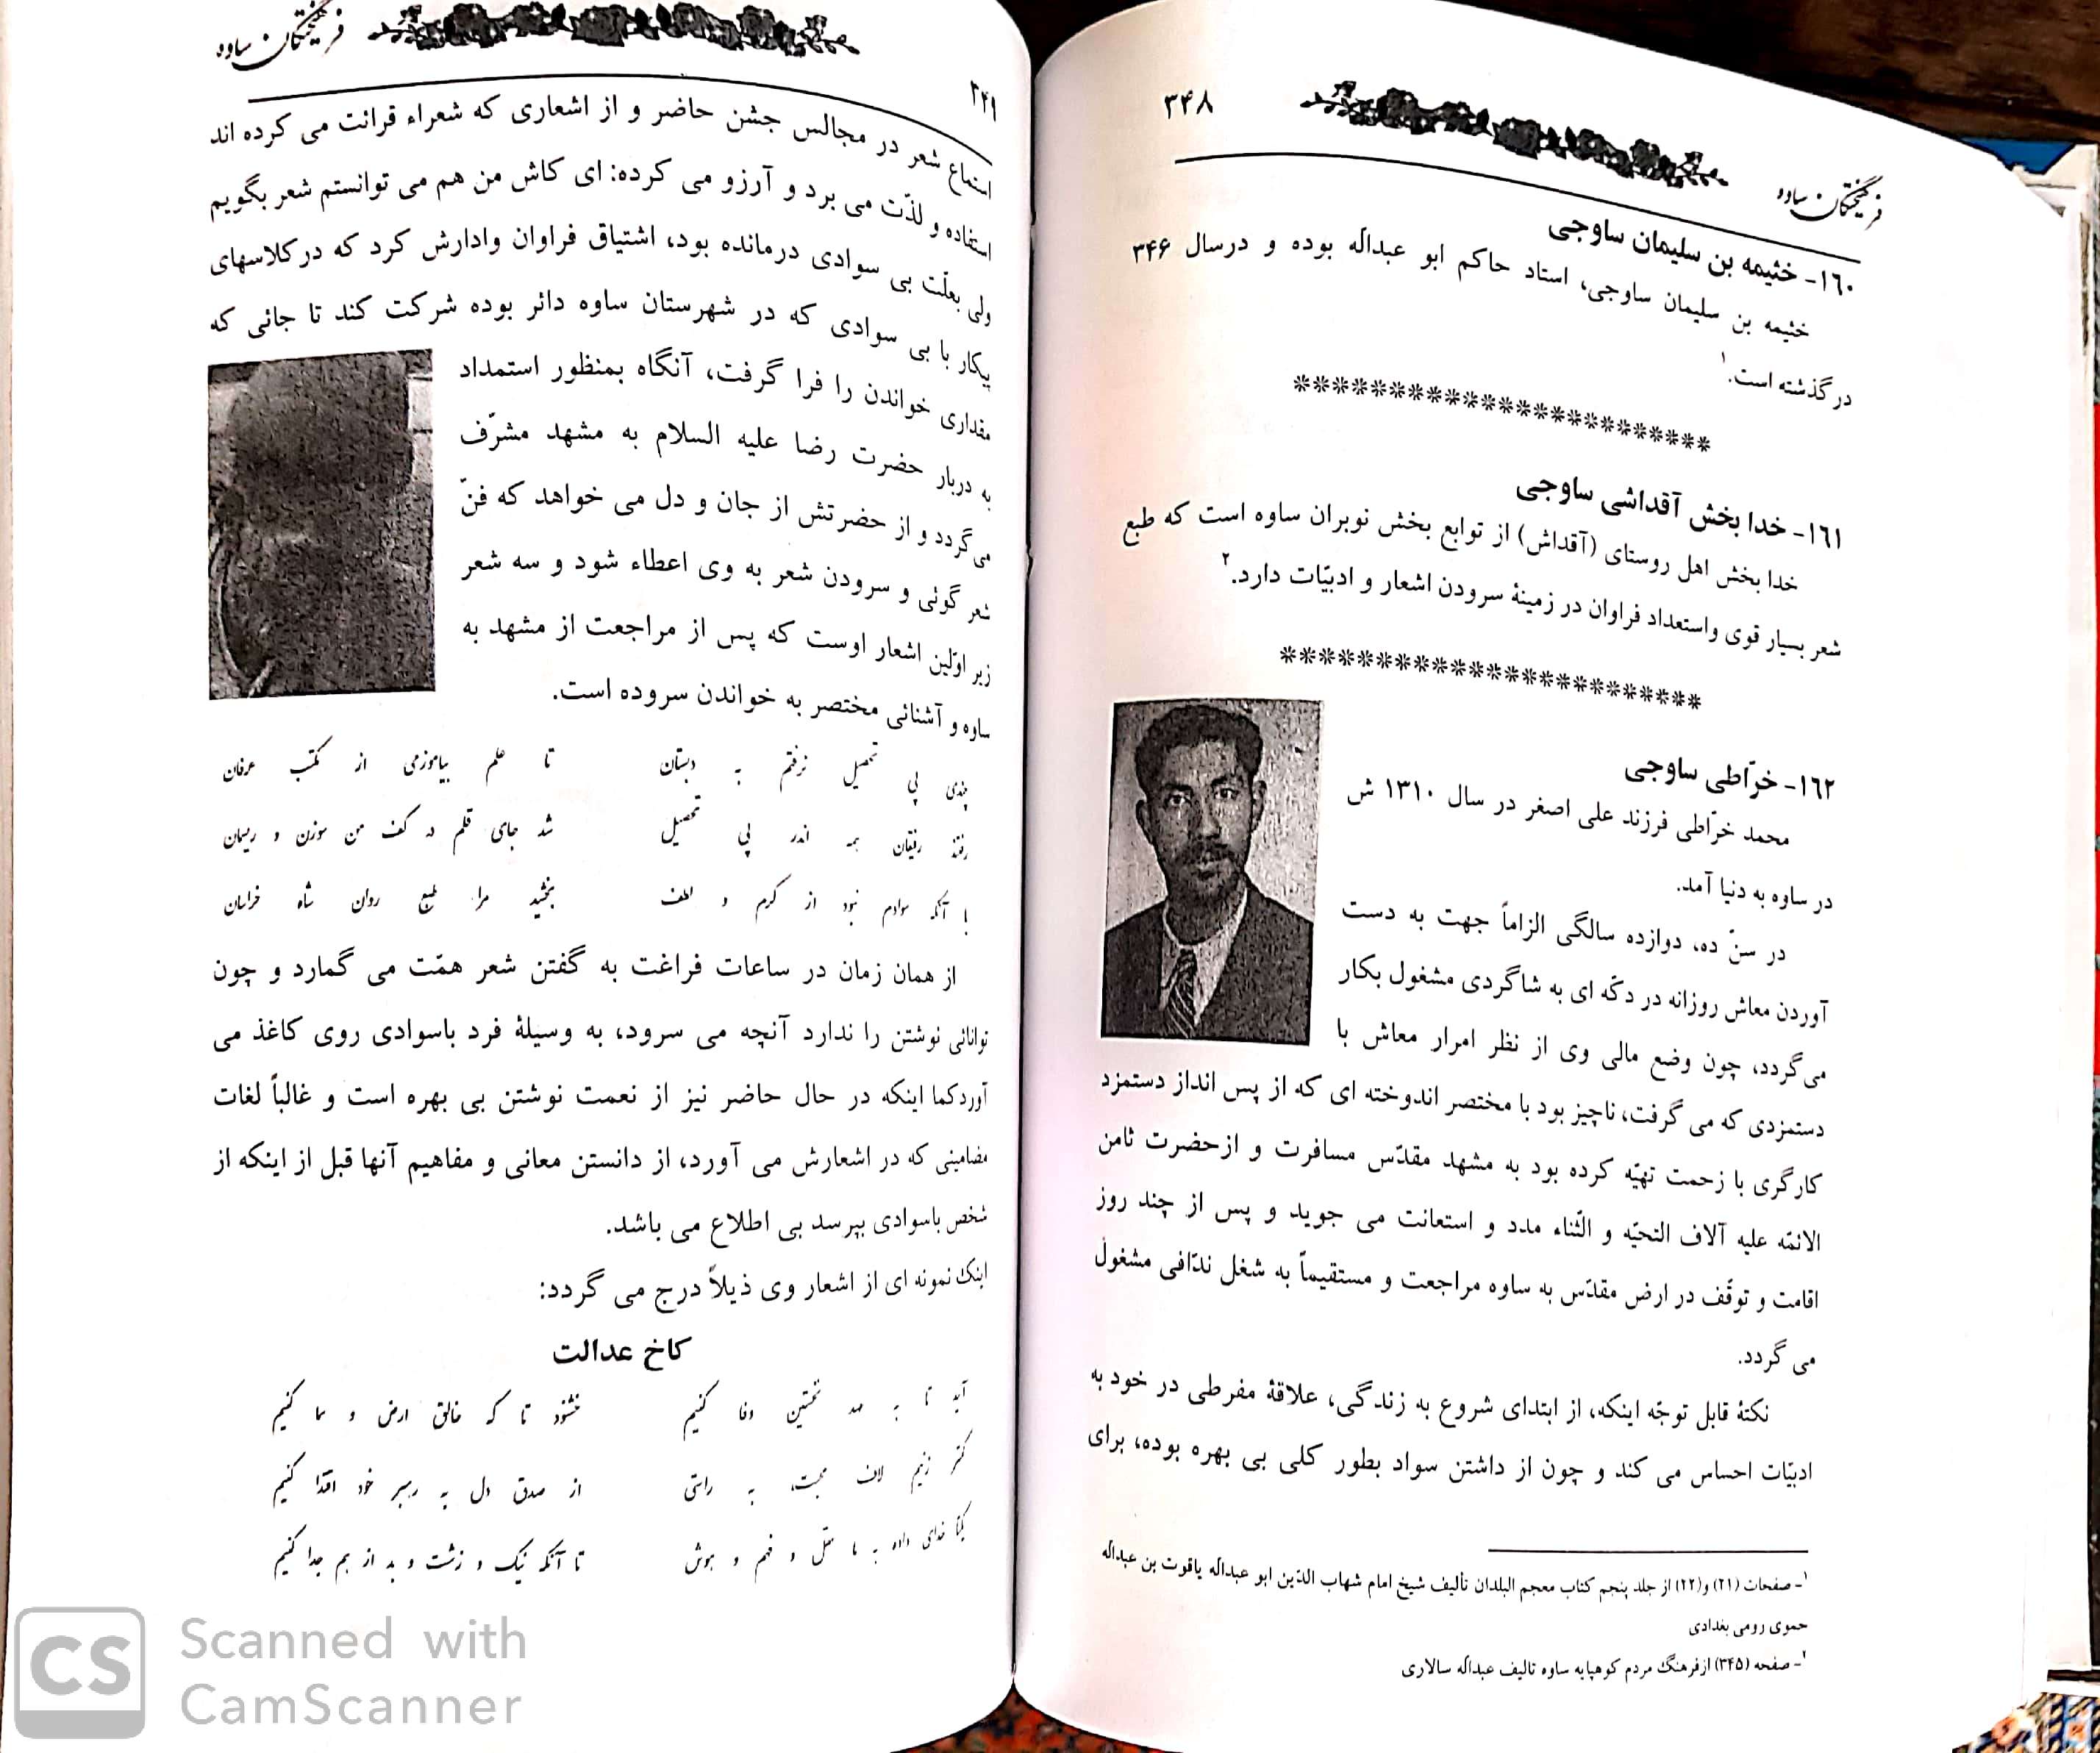 ۳۴۸
فرهیختگان ساوه
۱۶۰- خثیمه بن سلیمان ساوجی
خثیمه بن سلیمان ساوجی، استاد حاکم ابو عبداله بوده و درسال ۳۴۶
در گذشته است.۱
***********************
۱۶۱- خدا بخش آقداشی ساوجی
خدا بخش اهل روستای (آقداش) از توابع بخش نوبران ساوه است که طبع
شعر بسیار قوی واستعداد فراوان در زمینهٔ سرودن اشعار و ادبیّات دارد.۲
***********************
۱۶۲- خرّاطی ساوجی
محمد خرّاطی فرزند علی اصغر در سال ۱۳۱۰ ش
در ساوه به دنیا آمد.
در سنّ ده، دوازده سالگی الزاماً جهت به دست
آوردن معاش روزانه در دکّه ای به شاگردی مشغول بکار
می‌گردد، چون وضع مالی وی از نظر امرار معاش با
دستمزدی که می گرفت، ناچیز بود با مختصر اندوخته ای که از پس انداز دستمزد
کارگری با زحمت تهیّه کرده بود به مشهد مقدّس مسافرت و ازحضرت ثامن
الائمّه علیه آلاف التحیّه و الثّناء مدد و استعانت می جوید و پس از چند روز
اقامت و توقّف در ارض مقدّس به ساوه مراجعت و مستقیماً به شغل ندّافی مشغول
می گردد.
نکتهٔ قابل توجّه اینکه، از ابتدای شروع به زندگی، علاقهٔ مفرطی در خود به
ادبیّات احساس می کند و چون از داشتن سواد بطور کلی بی بهره بوده، برای
۱- صفحات (۲۱) و(۲۲) از جلد پنجم کتاب معجم البلدان تألیف شیخ امام شهاب الدّین ابو عبداله یاقوت بن عبداله
حموی رومی بغدادی
۲- صفحه (۳۴۵) ازفرهنگ مردم کوهپایه ساوه تالیف عبداله سالاری
فرهیختگان ساوه
استماع شعر در مجالس جشن حاضر و از اشعاری که شعراء قرائت می کرده اند
استفاده و لذّت می برد و آرزو می کرده: ای کاش من هم می توانستم شعر بگویم
ولی بعلّت بی سوادی درمانده بود، اشتیاق فراوان وادارش کرد که درکلاسهای
پیکار با بی سوادی که در شهرستان ساوه دائر بوده شرکت کند تا جائی که
مقداری خواندن را فرا گرفت، آنگاه بمنظور استمداد
به دربار حضرت رضا علیه السلام به مشهد مشرّف
می‌گردد و از حضرتش از جان و دل می خواهد که فنّ
شعر گوئی و سرودن شعر به وی اعطاء شود و سه شعر
زیر اوّلین اشعار اوست که پس از مراجعت از مشهد به
ساوه و آشنائی مختصر به خواندن سروده است.
چندی پی تحصیل نرفتم به دبستان تا علم بیاموزمی از مکتب عرفان
رفتند رفیقان همه اندر پی تحصیل شد جای قلم در کف من سوزن و ریسمان
با آنکه سوادم نبود از کرم و لطف بخشید مرا طبع روان شاه خراسان
از همان زمان در ساعات فراغت به گفتن شعر همّت می گمارد و چون
توانائی نوشتن را ندارد آنچه می سرود، به وسیلهٔ فرد باسوادی روی کاغذ می
آوردکما اینکه در حال حاضر نیز از نعمت نوشتن بی بهره است و غالباً لغات
مضامینی که در اشعارش می آورد، از دانستن معانی و مفاهیم آنها قبل از اینکه از
شخص باسوادی بپرسد بی اطلاع می باشد.
اینک نمونه ای از اشعار وی ذیلاً درج می گردد:
کاخ عدالت
آید تا به عهد نخستین وفا کنیم خشنود تا که خالق ارض و سما کنیم
کمتر زنیم لاف محبت، به راستی از صدق دل به رهبر خود اقتدا کنیم
یکتا خدای داده به ما عقل و فهم و هوش تا آنکه نیک و زشت و بد از هم جدا کنیم
CS Scanned with
CamScanner